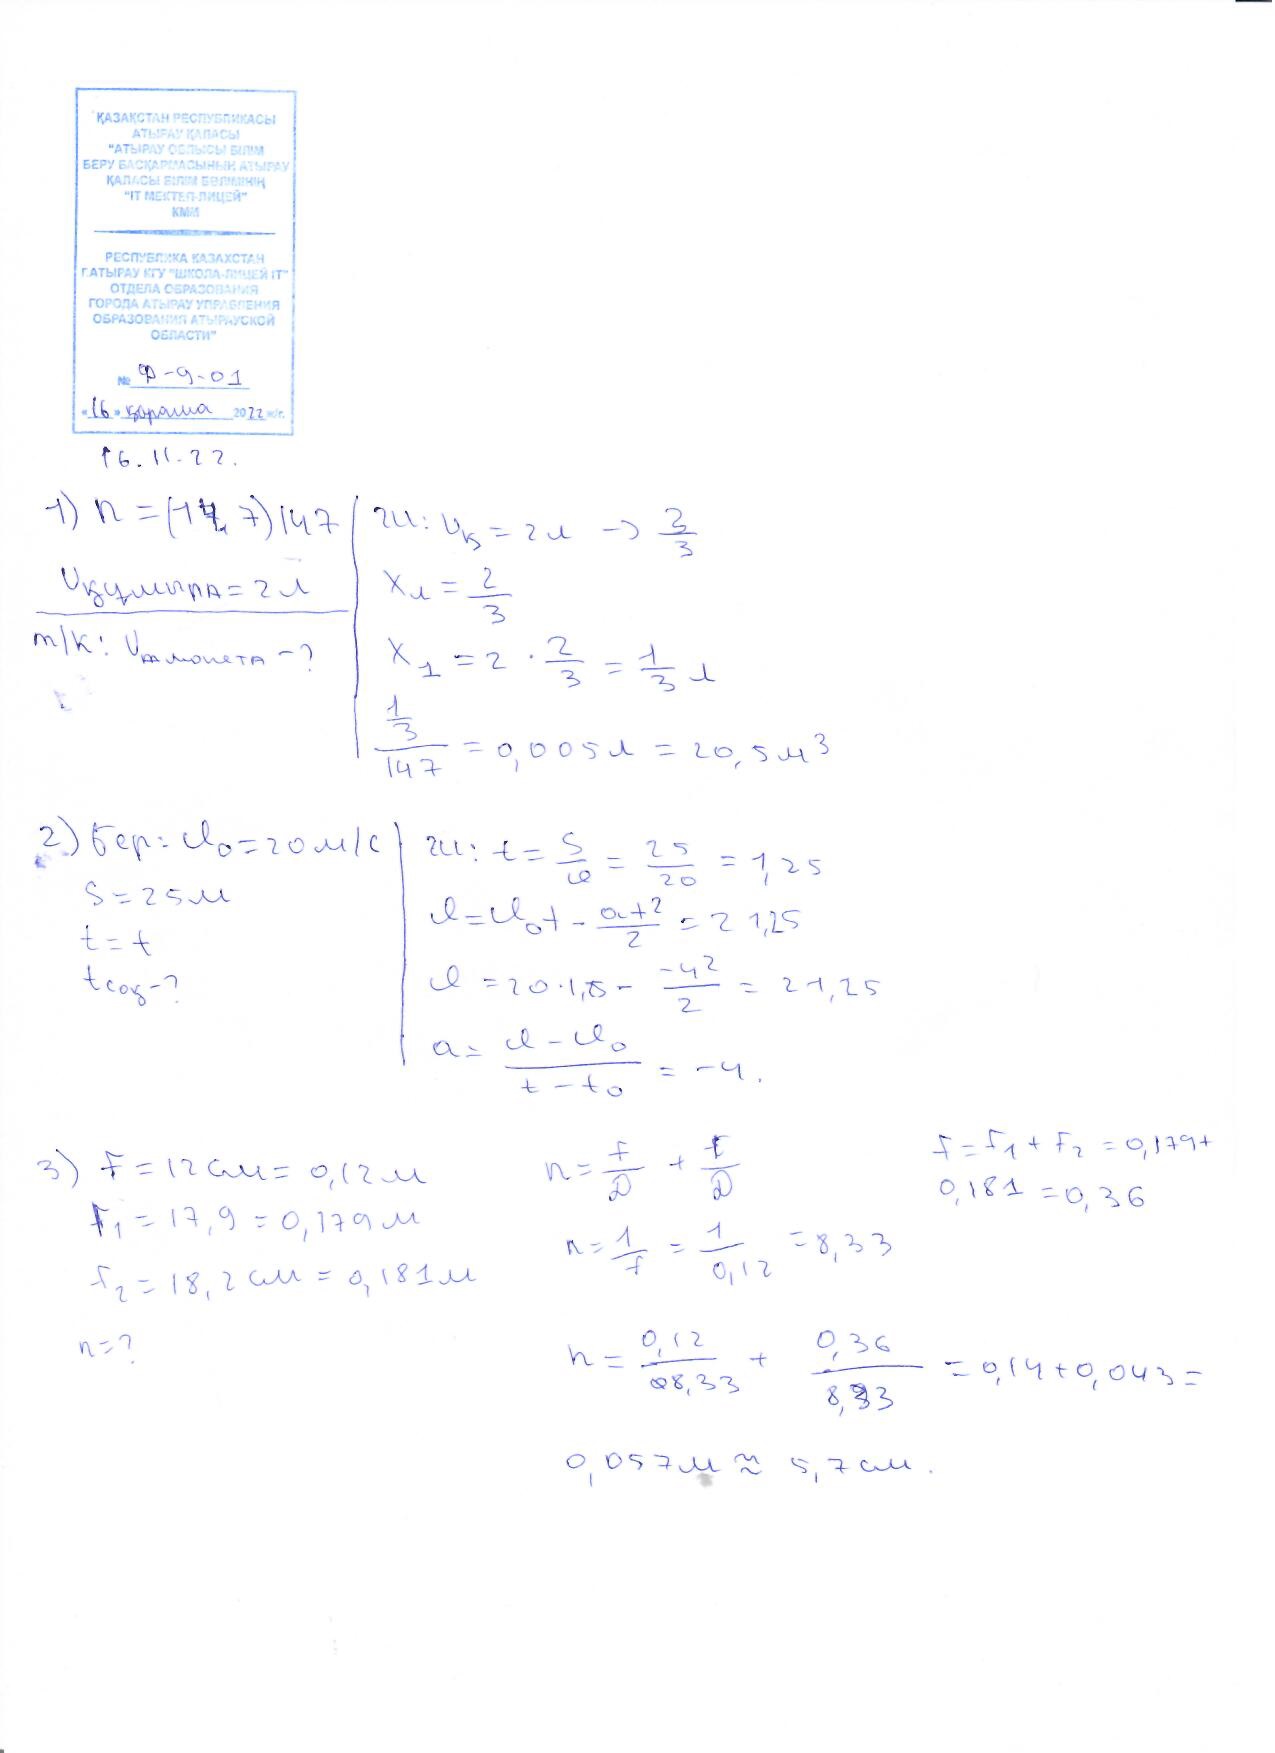 ҚАЗАҚСТАН РЕСПУБЛИКАСЫ
АТЫРАУ ҚАЛАСЫ
"АТЫРАУ ОБЛЫСЫ БІЛІМ
БЕРУ БАСҚАРМАСЫНЫҢ АТЫРАУ
ҚАЛАСЫ БІЛІМ БӨЛІМІНІҢ
"IT МЕКТЕП-ЛИЦЕЙ"
КММ
РЕСПУБЛИКА КАЗАХСТАН
Г.АТЫРАУ КГУ "ШКОЛА-ЛИЦЕЙ IT"
ОТДЕЛА ОБРАЗОВАНИЯ
ГОРОДА АТЫРАУ УПРАВЛЕНИЯ
ОБРАЗОВАНИЯ АТЫРАУСКОЙ
ОБЛАСТИ"
№ Ф-9-01
«16» қараша 2022 ж/г.
16.11.22.
1) n = (14,7) 147
υқұмыра = 2л
т/к: υ монета - ?
Ш: υқ = 2л → 3/3
xл = 2/3
x1 = 2 · 2/3 = 1/3 л
1/3 / 147 = 0,005л = 20,5м³
2) Бер: υ0 = 20м/с
S = 25м
t = t
tсоқ - ?
Ш: t = S/υ = 25/20 = 1,25
υ = υ0t - at²/2 = 21,25
υ = 20·1,25 - -4²/2 = 21,25
a = υ - υ0 / t - t0 = -4.
3) F = 12см = 0,12м
F1 = 17,9 = 0,179м
F2 = 18,2см = 0,181м
n = ?
n = F/D + F/D
n = 1/F = 1/0,12 = 8,33
F = F1 + F2 = 0,179+
0,181 = 0,36
n = 0,12/8,33 + 0,36/8,33 = 0,14+0,043 =
0,057м ≈ 5,7см.